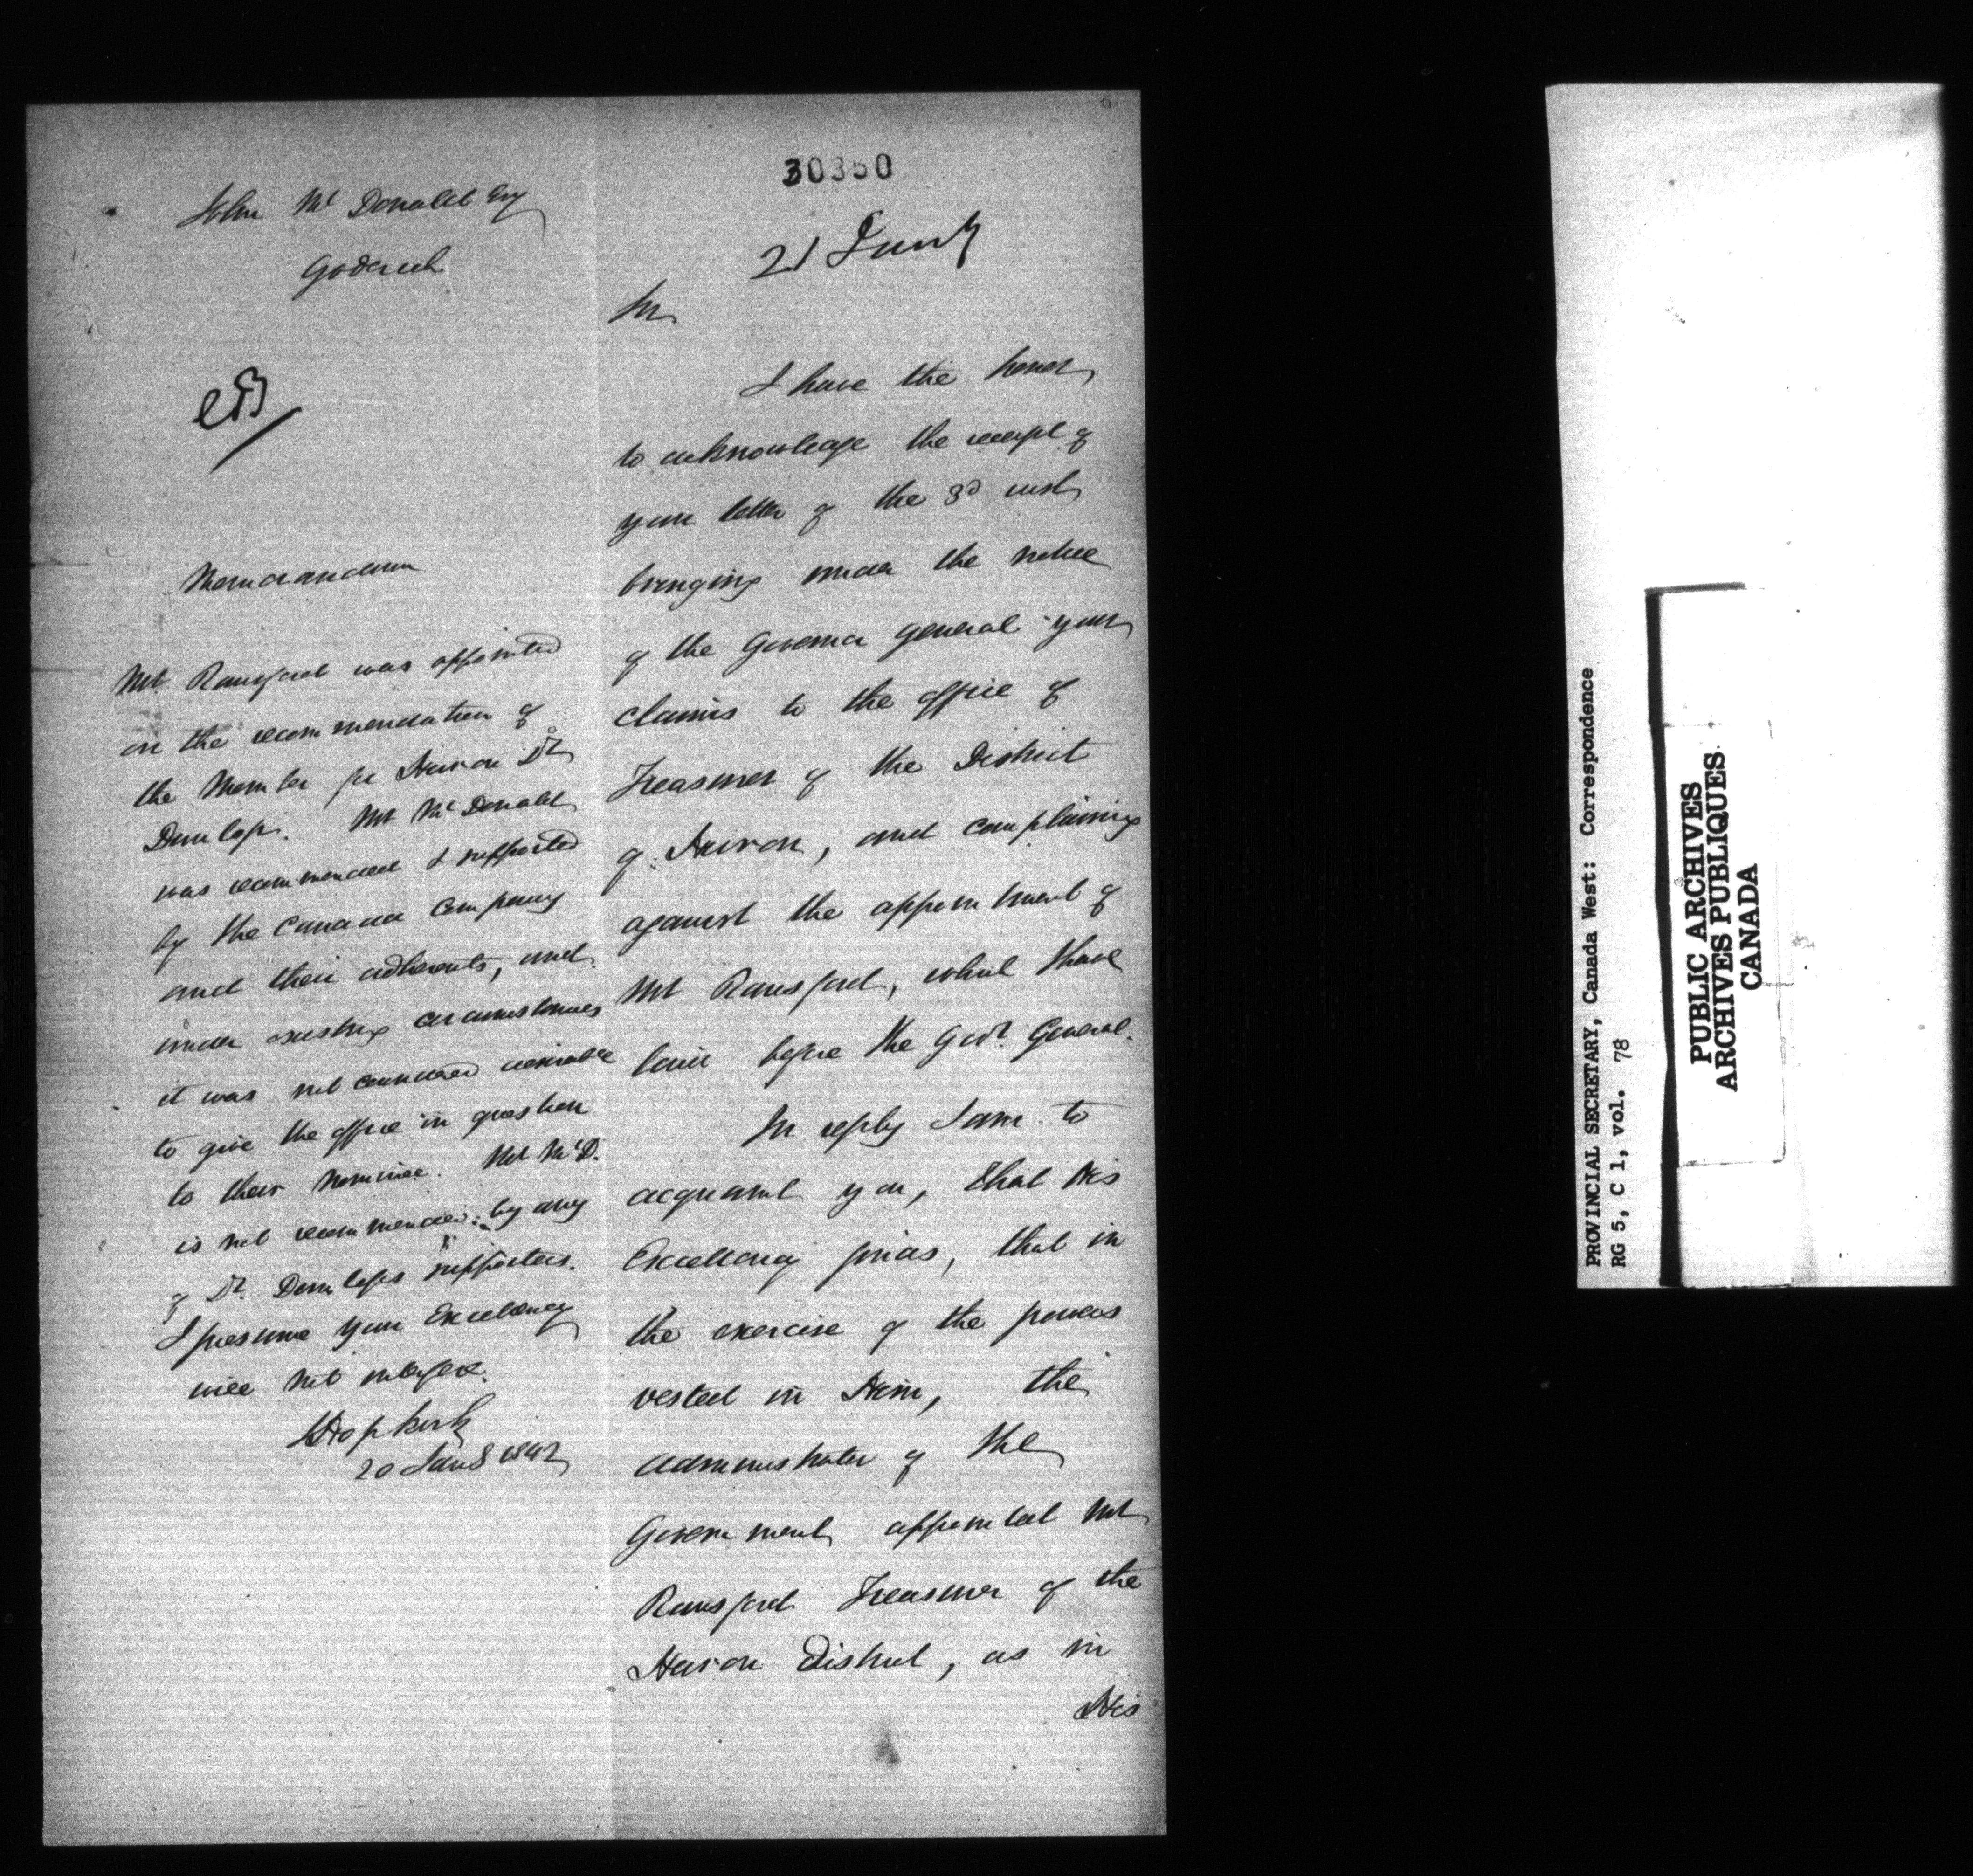 John McDonald Esq
Goderich
Memorandum
Mr. Ransford was appointed
on the recommendation of
the Member for Huron Dr
Dunlop. Mr McDonald
was recommended & supported
by the Canada Company
and their adherents, and
under existing circumstances
it was not considered desirable
to give the office in question
to their nominee. Mr McD.
is not recommended by any
of Dr. Dunlops supporters.
I presume your Excellency
will not interfere.
Hopkirk
20 Jany 1842
30350
21 Jany
Sir
I have the honor
to acknowledge the receipt of
your letter of the 3d inst
bringing under the notice
of the Governor General your
claims to the office of
Treasurer of the District
of Huron, and complaining
against the appointment of
Mr Ransford, which I have
laid before the Govr. General.
In reply I am to
acquaint you, that His
Excellency finds, that in
the exercise of the powers
vested in Him, the
Administrator of the
Government appointed Mr
Ransford Treasurer of the
Huron District, as in
His
PROVINCIAL SECRETARY, Canada West: Correspondence
RG 5, C 1, vol. 78
PUBLIC ARCHIVES
ARCHIVES PUBLIQUES
CANADA